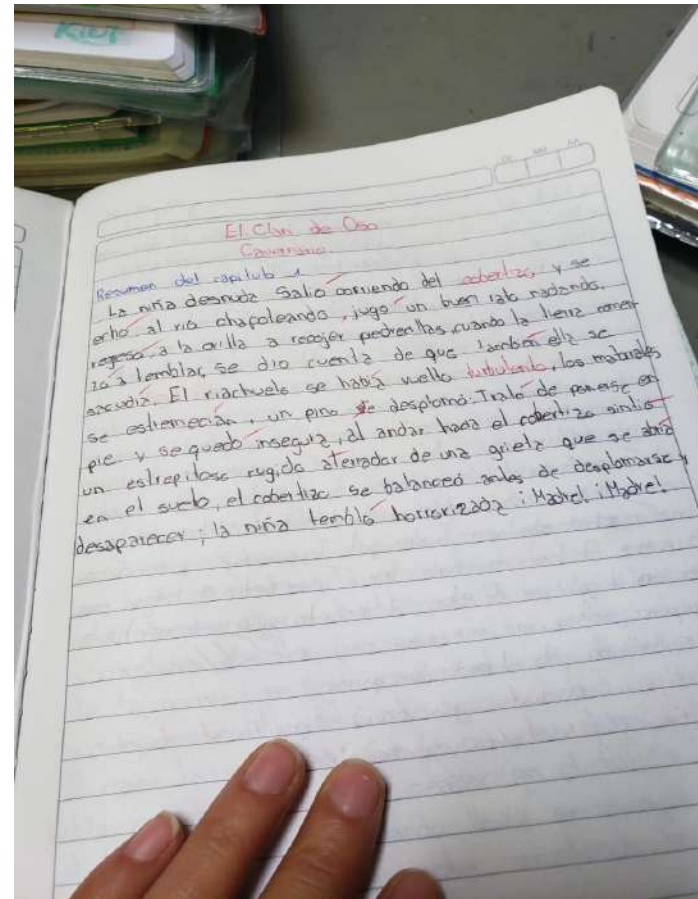 KIUT
El Clan de Oso
Cavernario
Resumen del capitulo 1
La niña desnuda Salió corriendo del cobertizo y se
echó al rió chapoleando, jugó un buen rato nadando.
regesó a la orilla a recojer pedrecillas, cuando la tierra comen
zó a temblar, se dio cuenta de que también ella se
sacudia. El riachuelo se había vuelto turbulento, los matorrales
se estremecían, un pino se desplomó. Trató de ponerse en
pie y se quedó insegura, al andar hacia el cobertizo sintió
un estrepitoso rugido aterrador de una grieta que se abrió
en el suelo, el cobertizo se balanceó antes de desplomarse y
desaparecer; la niña tembló horrorizada ¡Madre! ¡Madre!